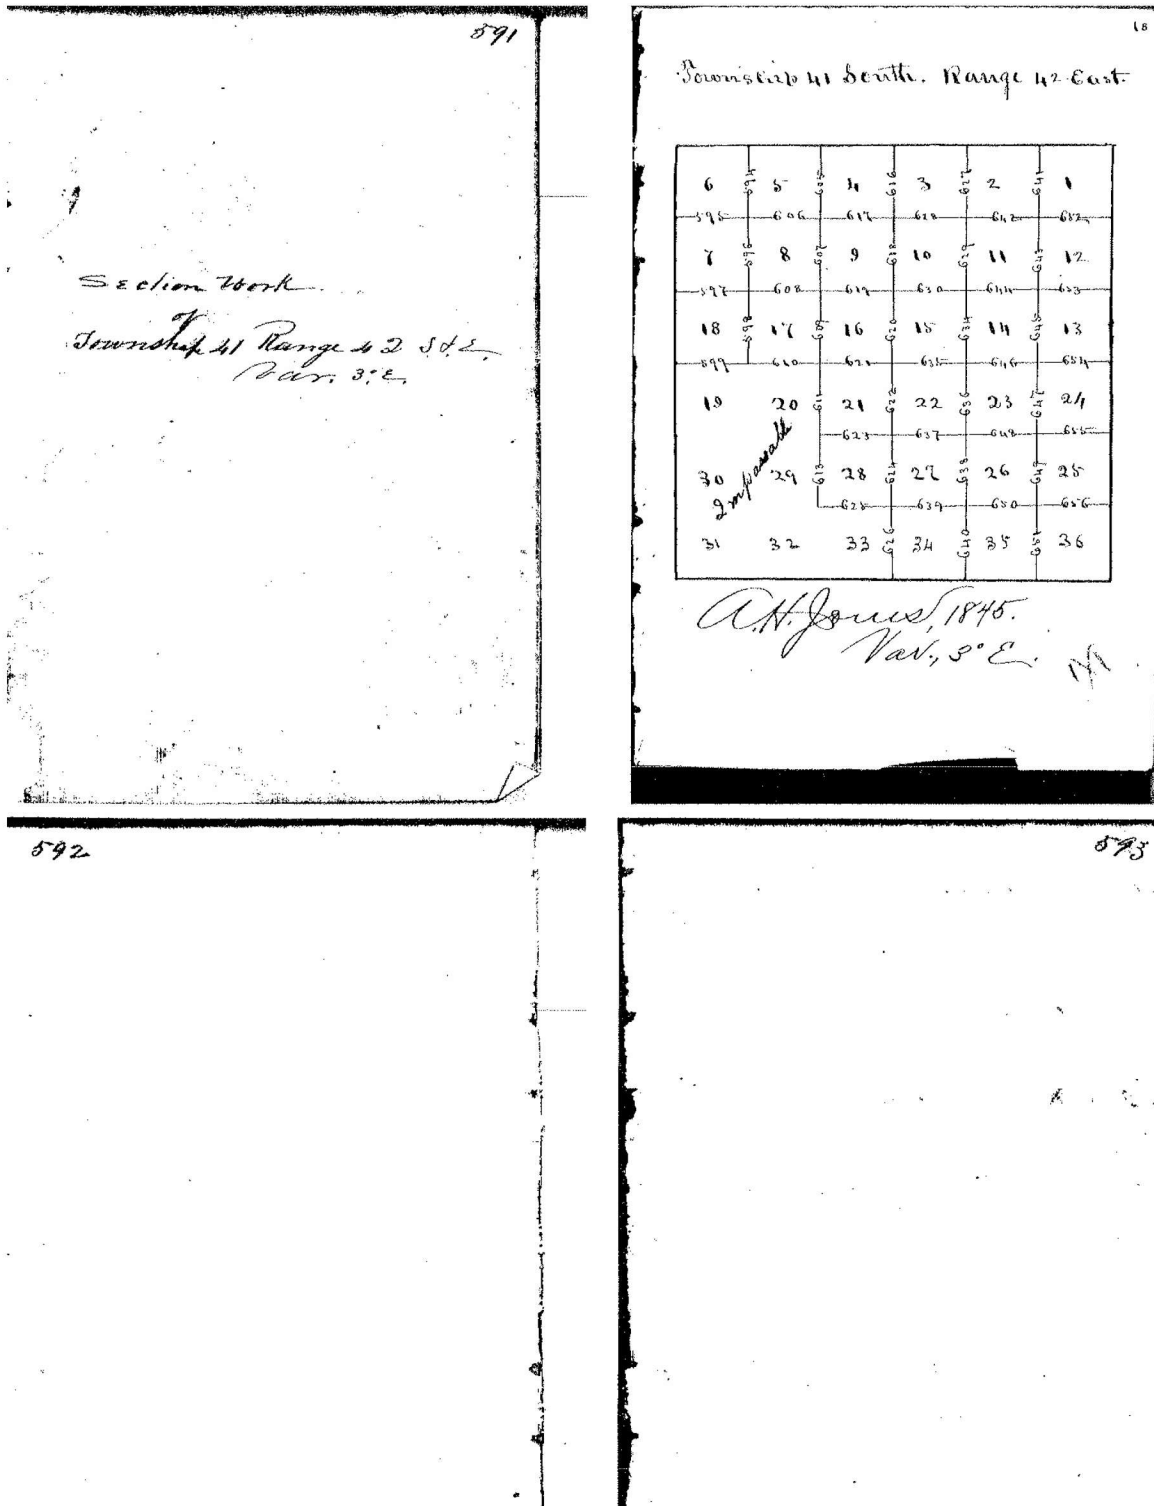 591
Section Work
of
Township 41 Range 42 S & E.
Var. 3° E.
18
Township 41 South. Range 42 East.
6 594 5 605 4 616 3 627 2 641 1
595 606 617 628 642 652
7 596 8 607 9 618 10 629 11 643 12
597 608 619 630 644 653
18 598 17 609 16 620 15 634 14 645 13
599 610 621 635 646 654
19 20 611 21 622 22 636 23 647 24
Impassable
623 637 648 655
30 29 613 28 624 27 638 26 649 25
625 639 650 656
31 32 33 626 34 640 35 651 36
A.H. Jones, 1845.
Var., 3° E.
592
593